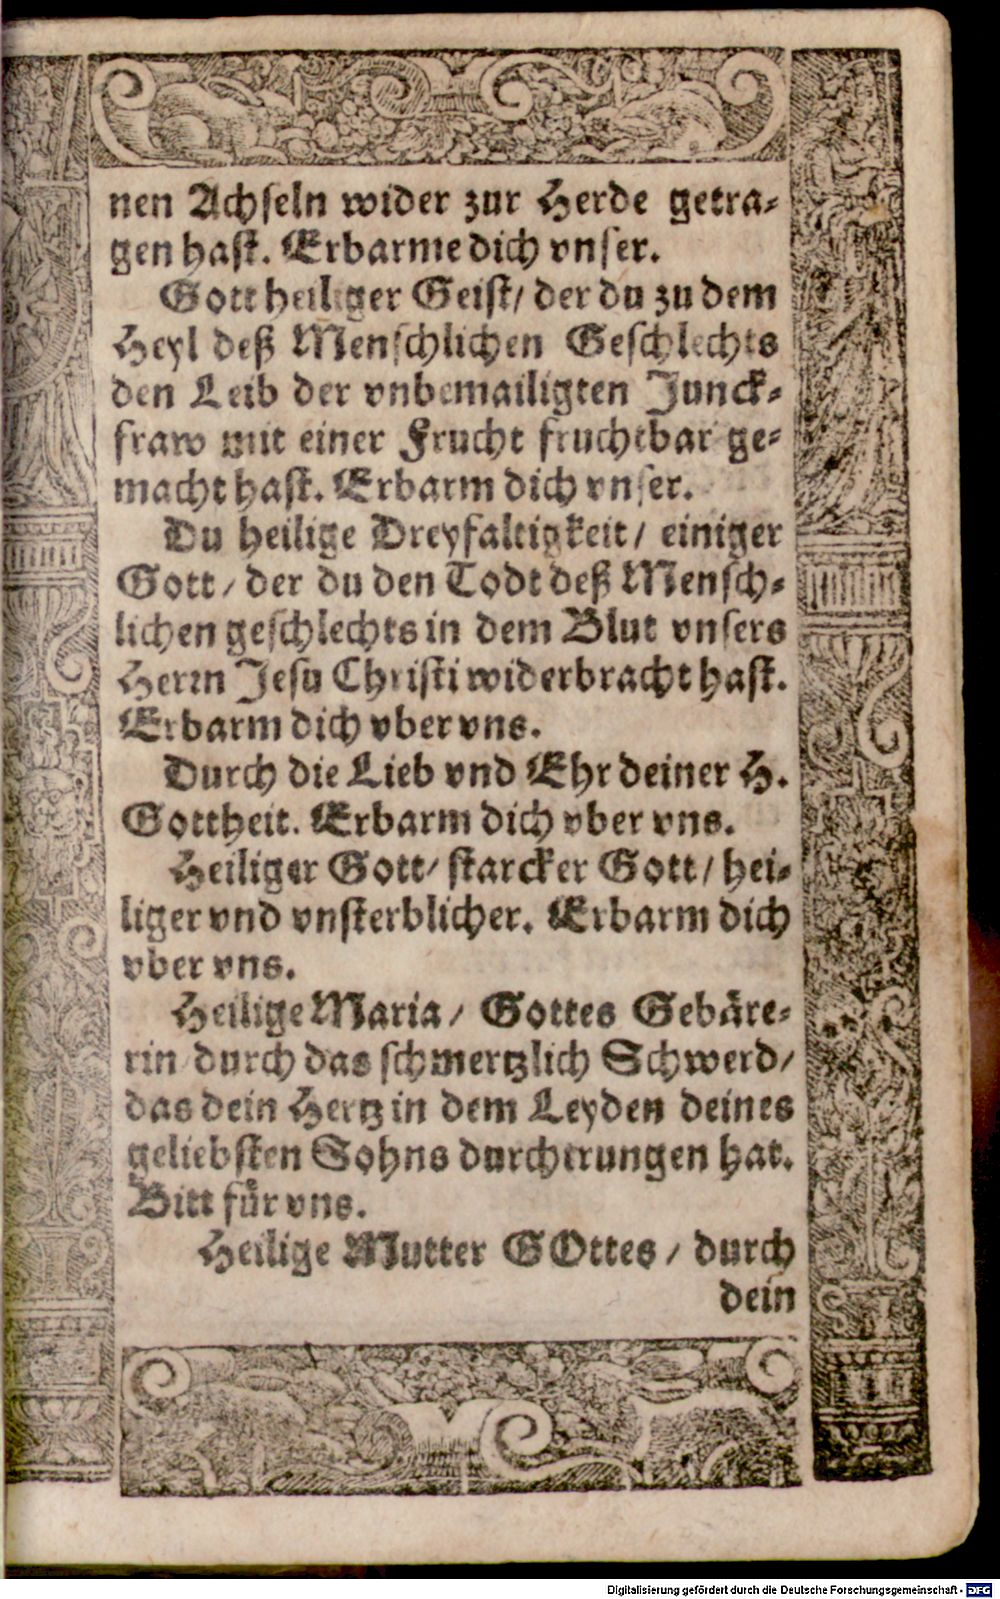 nen Achseln wider zur Herde getra-
gen hast. Erbarme dich vnser.
Gott heiliger Geist/ der du zu dem
Heyl deß Menschlichen Geschlechts
den Leib der vnbemailigten Junck-
fraw mit einer Frucht fruchtbar ge-
macht hast. Erbarm dich vnser.
Du heilige Dreyfaltigkeit/ einiger
Gott/ der du den Todt deß Mensch-
lichen geschlechts in dem Blut vnsers
Herrn Jesu Christi widerbracht hast.
Erbarm dich vber vns.
Durch die Lieb vnd Ehr deiner H.
Gottheit. Erbarm dich vber vns.
Heiliger Gott/ starcker Gott/ hei-
liger vnd vnsterblicher. Erbarm dich
vber vns.
Heilige Maria/ Gottes Gebäre-
rin durch das schmertzlich Schwerd/
das dein Hertz in dem Leyden deines
geliebsten Sohns durchtrungen hat.
Bitt für vns.
Heilige Mutter GOttes/ durch
dein
Digitalisierung gefördert durch die Deutsche Forschungsgemeinschaft - DFG